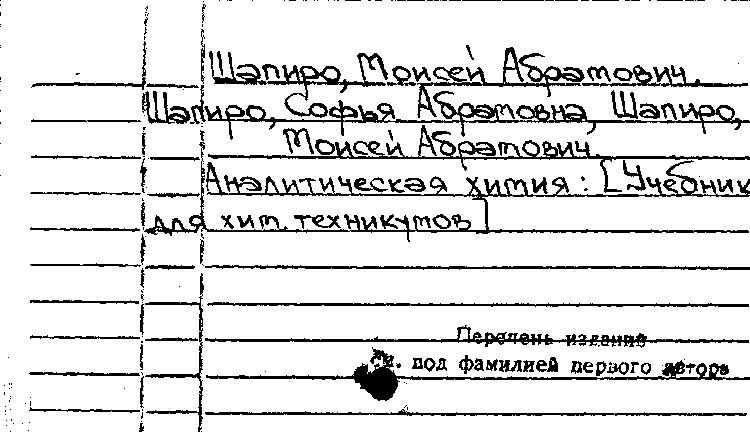 Шапиро, Моисей Абрамович.
Шапиро, Софья Абрамовна, Шапиро,
Моисей Абрамович.
Аналитическая химия: [Учебник
для хим. техникумов]
Перечень изданий
см. под фамилией первого автора